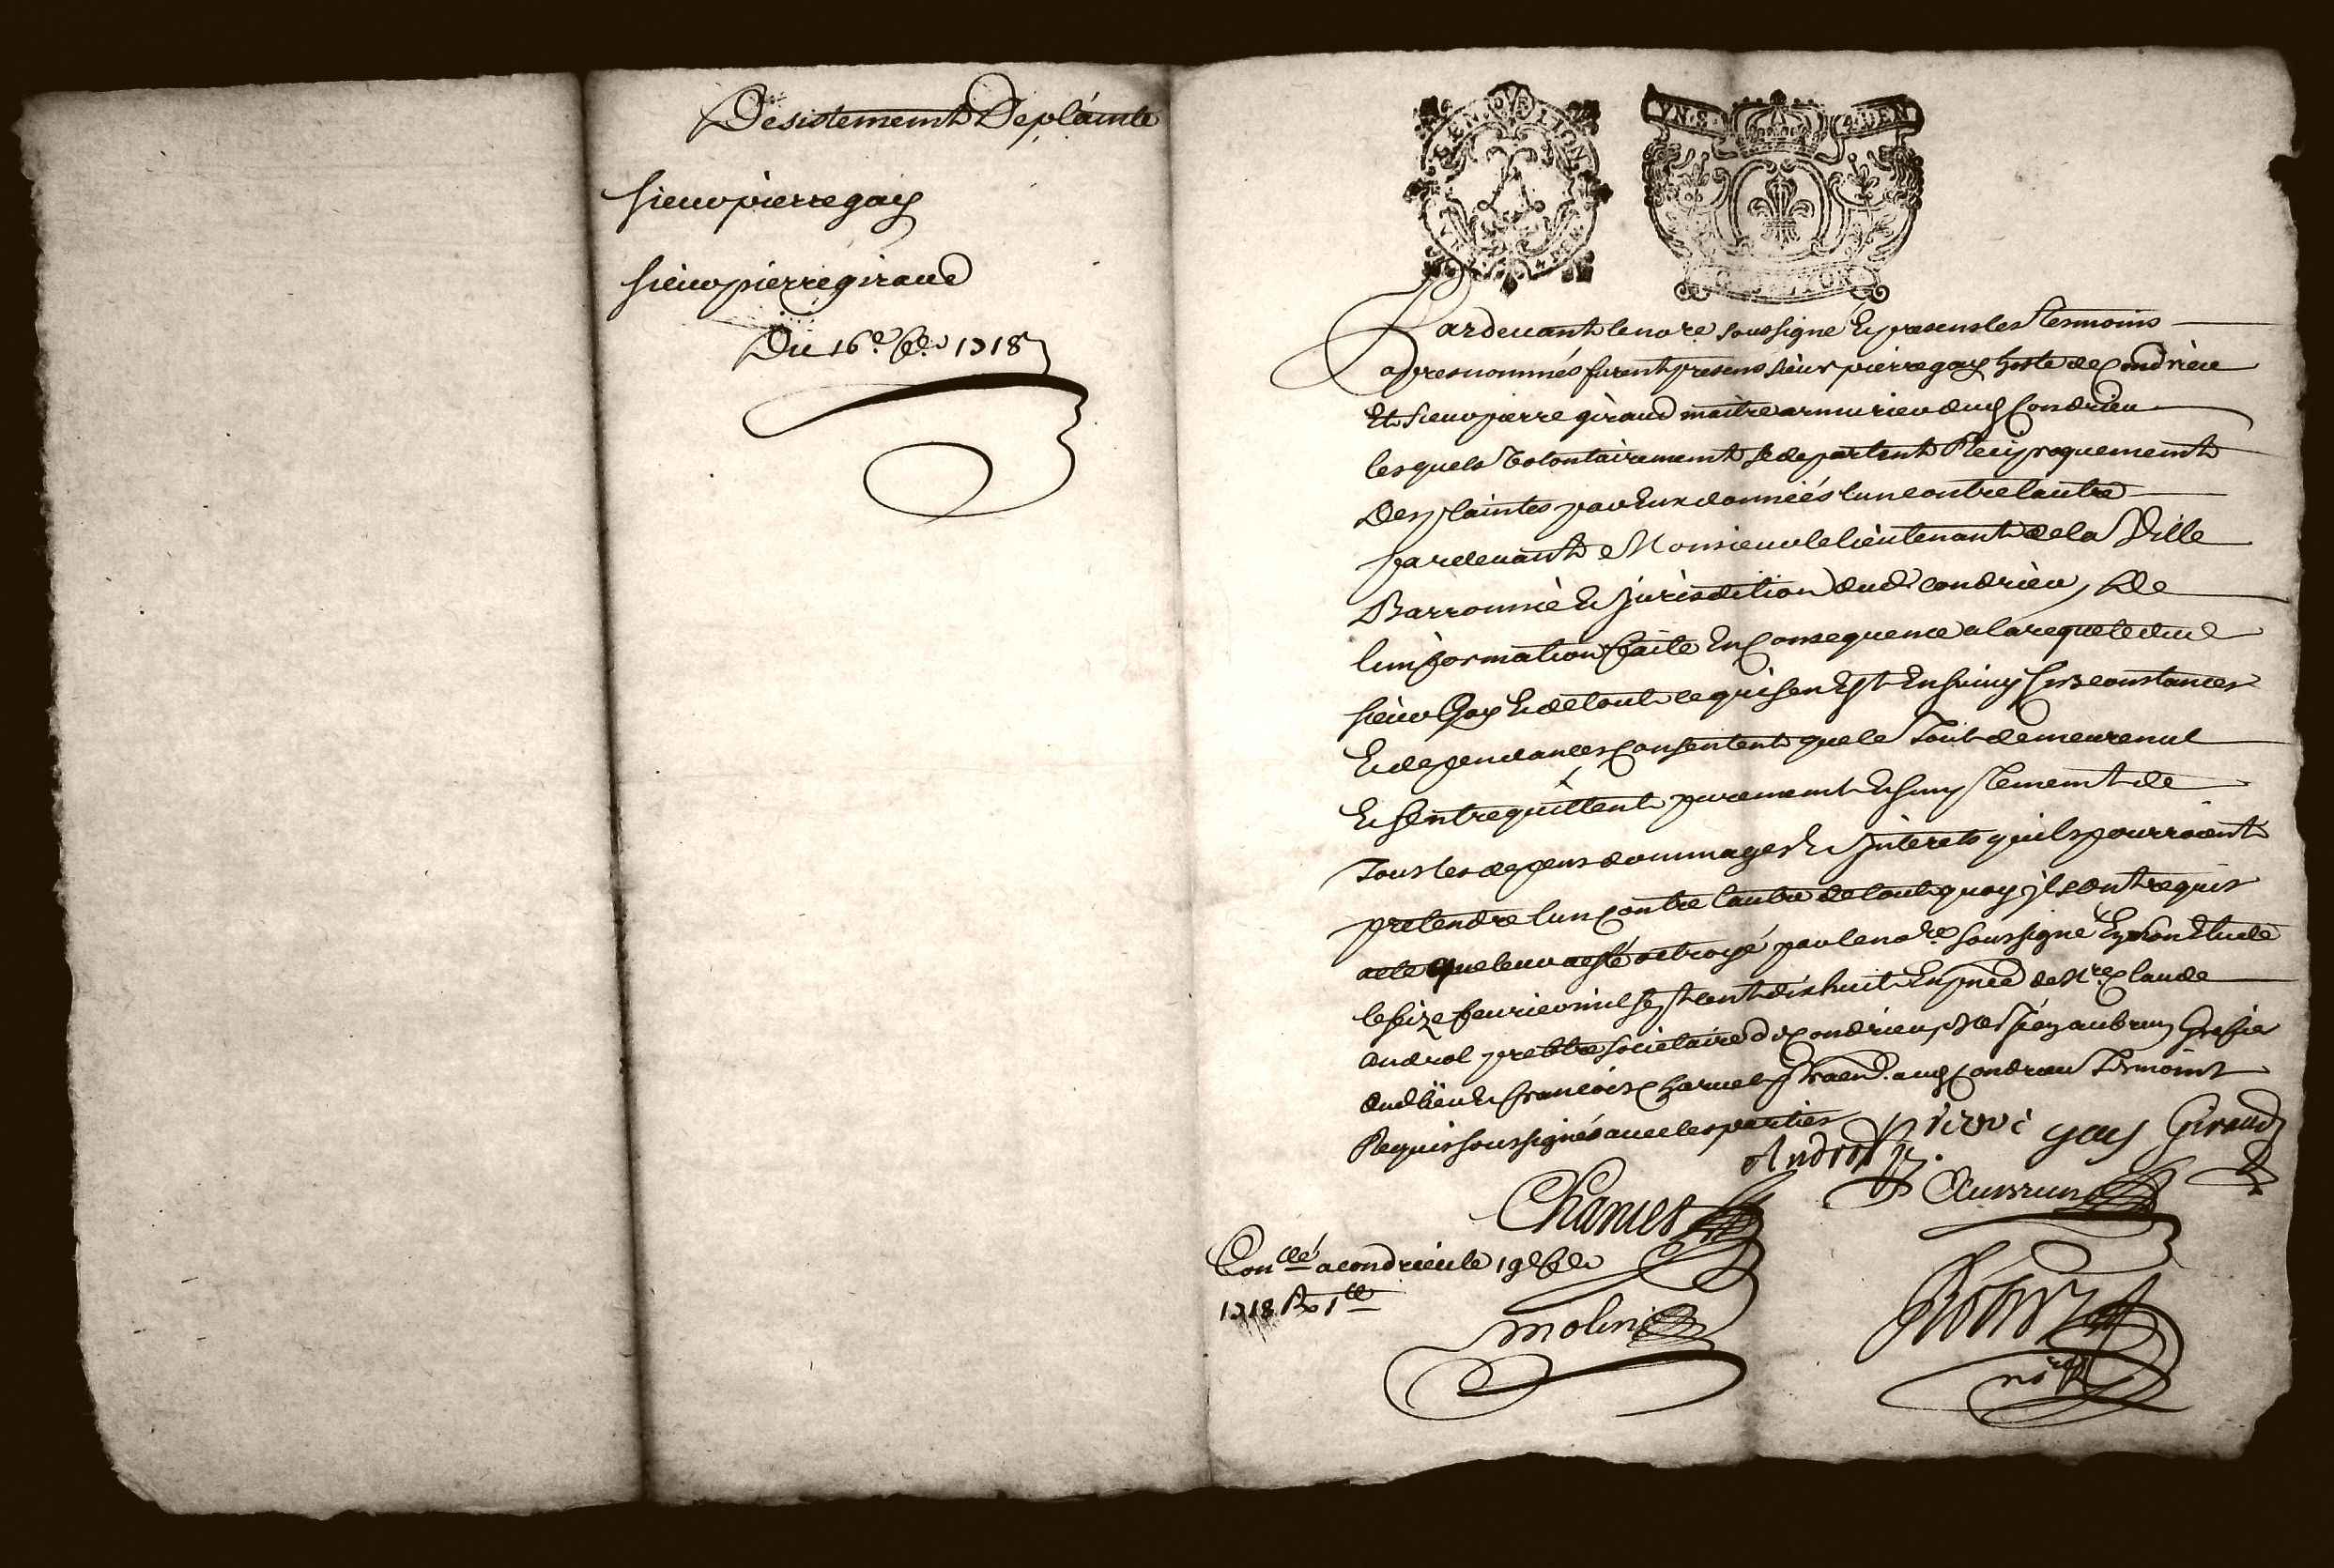 Desistement De plainte
sieur pierre gay
sieur pierre giraud
Du 16e. 1718
GEN. D LION
YN. S. 4. DEN
G. D. LYON
Pardevant le nore. soussigné & presens les tesmoins
apres nommés furent presens sieur pierre gay hoste de Condrieu
Et sieur pierre giraud maitre armurier dud Condrieu
lesquels volontairement se departent Reciproquement
Des plaintes par Eux données lun contre lautre
pardevant Monsieur le lieutenant de la Ville
Barronnie & jurisdition dud condrieu, De
linformation faite En Consequence a la requete dud
sieur Gay & de tout ce qui sen Est Ensuivy Circonstances
& dependances Consentent que le Tout demeure nul
& sentrequittent purement & simplement de
Tous les depens dommages & jnterets quils pourroient
pretendre lun Contre lautre de tout quoy jls ont requis
acte que leur a esté octroyé par le nore. soussigné En son Etude
le seize fevrier mil sept cent dix huit En pnce de Mre Claude
androl prebtre societaire de Condrieu, aubrun Greffier
dud lieu & francois Charvet aud Condrieu Tesmoins
Requis soussignés avec les parties
pierre gay Giraud
Androl ptre. Aubrun
Charvet
Conllé a condrieu le 19e
1718 Rx 1 ll
molin
nore